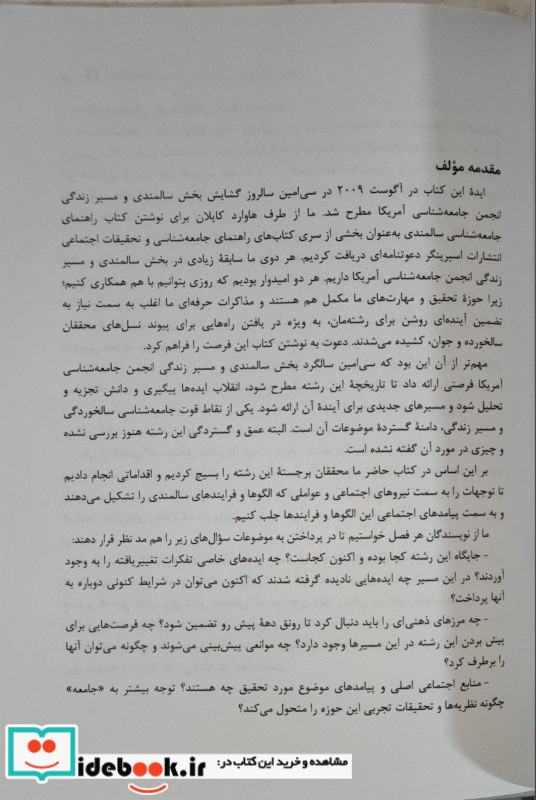 مقدمه مؤلف
ایدهٔ این کتاب در آگوست ۲۰۰۹ در سی‌امین سالروز گشایش بخش سالمندی و مسیر زندگی
انجمن جامعه‌شناسی آمریکا مطرح شد. ما از طرف هاوارد کاپلان برای نوشتن کتاب راهنمای
جامعه‌شناسی سالمندی به‌عنوان بخشی از سری کتاب‌های راهنمای جامعه‌شناسی و تحقیقات اجتماعی
انتشارات اسپرینگر دعوتنامه‌ای دریافت کردیم. هر دوی ما سابقهٔ زیادی در بخش سالمندی و مسیر
زندگی انجمن جامعه‌شناسی آمریکا داریم. هر دو امیدوار بودیم که روزی بتوانیم با هم همکاری کنیم؛
زیرا حوزهٔ تحقیق و مهارت‌های ما مکمل هم هستند و مذاکرات حرفه‌ای ما اغلب به سمت نیاز به
تضمین آینده‌ای روشن برای رشته‌مان، به ویژه در یافتن راه‌هایی برای پیوند نسل‌های محققان
سالخورده و جوان، کشیده می‌شدند. دعوت به نوشتن کتاب این فرصت را فراهم کرد.
مهم‌تر از آن این بود که سی‌امین سالگرد بخش سالمندی و مسیر زندگی انجمن جامعه‌شناسی
آمریکا فرصتی ارائه داد تا تاریخچهٔ این رشته مطرح شود، انقلاب ایده‌ها پیگیری و دانش تجزیه و
تحلیل شود و مسیرهای جدیدی برای آیندهٔ آن ارائه شود. یکی از نقاط قوت جامعه‌شناسی سالخوردگی
و مسیر زندگی، دامنهٔ گستردهٔ موضوعات آن است. البته عمق و گستردگی این رشته هنوز بررسی نشده
و چیزی در مورد آن گفته نشده است.
بر این اساس در کتاب حاضر ما محققان برجستهٔ این رشته را بسیج کردیم و اقداماتی انجام دادیم
تا توجهات را به سمت نیروهای اجتماعی و عواملی که الگوها و فرایندهای سالمندی را تشکیل می‌دهند
و به سمت پیامدهای اجتماعی این الگوها و فرایندها جلب کنیم.
ما از نویسندگان هر فصل خواستیم تا در پرداختن به موضوعات سؤال‌های زیر را هم مد نظر قرار دهند:
- جایگاه این رشته کجا بوده و اکنون کجاست؟ چه ایده‌های خاصی تفکرات تغییریافته را به وجود
آوردند؟ در این مسیر چه ایده‌هایی نادیده گرفته شدند که اکنون می‌توان در شرایط کنونی دوباره به
آنها پرداخت؟
- چه مرزهای ذهنی‌ای را باید دنبال کرد تا رونق دههٔ پیش رو تضمین شود؟ چه فرصت‌هایی برای
پیش بردن این رشته در این مسیرها وجود دارد؟ چه موانعی پیش‌بینی می‌شوند و چگونه می‌توان آنها
را برطرف کرد؟
- منابع اجتماعی اصلی و پیامدهای موضوع مورد تحقیق چه هستند؟ توجه بیشتر به «جامعه»
چگونه نظریه‌ها و تحقیقات تجربی این حوزه را متحول می‌کند؟
مشاهده و خرید این کتاب در:
idebook.ir